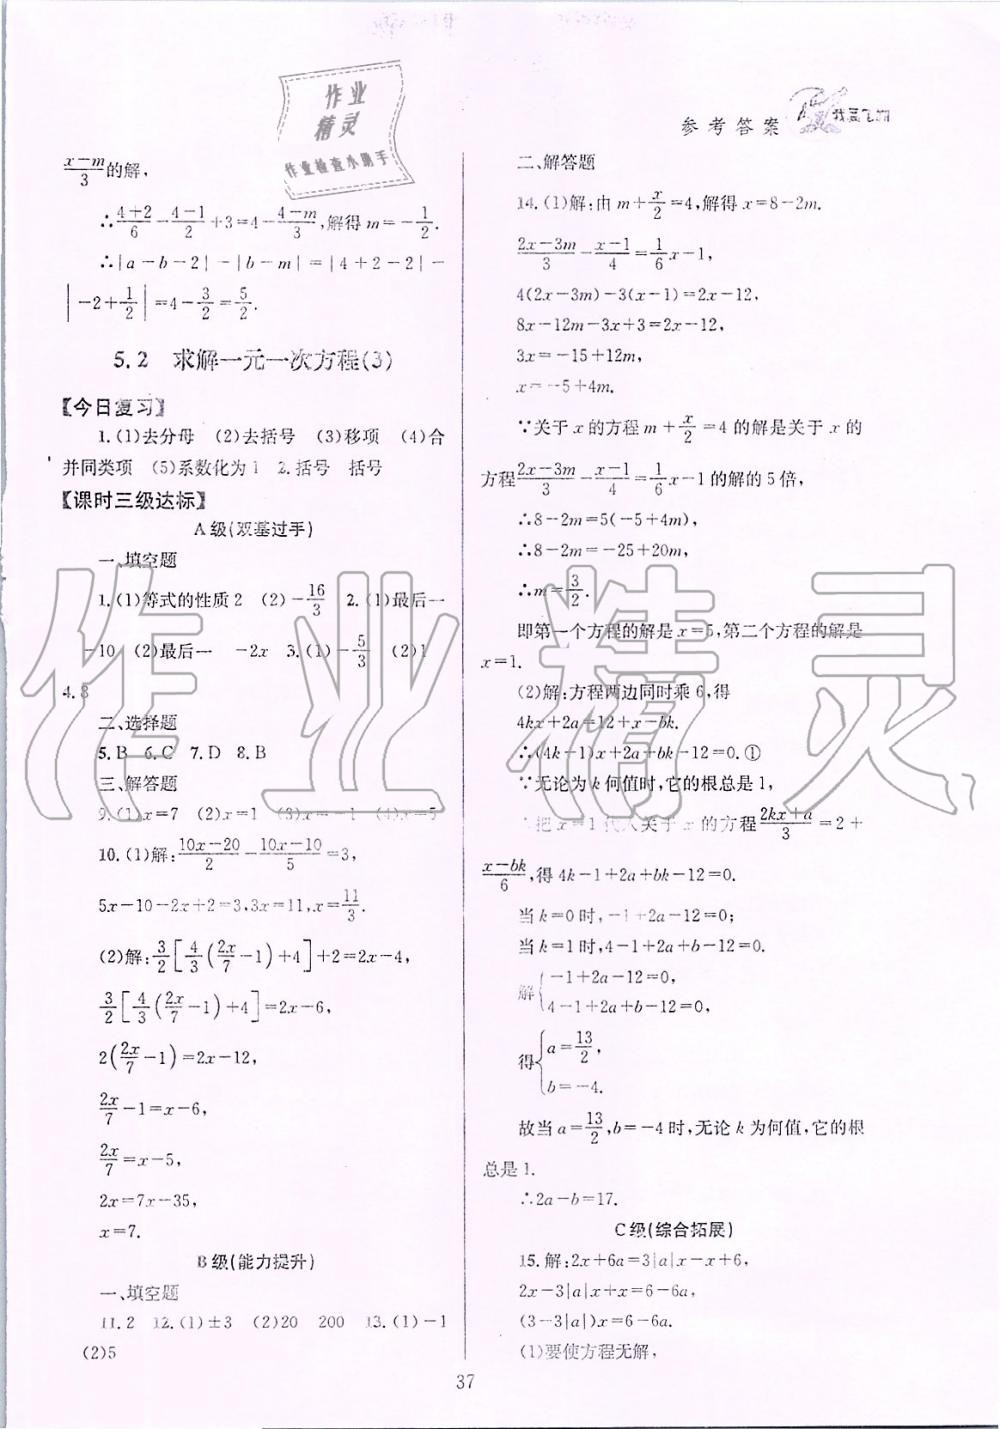 参考答案
作业
精灵
作业检查小助手
$\frac{x-m}{3}$的解,
∴$\frac{4+2}{6}-\frac{4-1}{2}+3=4-\frac{4-m}{3}$,解得$m=-\frac{1}{2}$.
∴|a-b-2|-|b-m|=|4+2-2|-
$\left|-2+\frac{1}{2}\right|=4-\frac{3}{2}=\frac{5}{2}$.
5.2 求解一元一次方程(3)
【今日复习】
1.(1)去分母 (2)去括号 (3)移项 (4)合
并同类项 (5)系数化为1 2.括号 括号
【课时三级达标】
A级(双基过手)
一、填空题
1.(1)等式的性质2 (2)$-\frac{16}{3}$ 2.(1)最后一
-10 (2)最后一 -2x 3.(1)$-\frac{5}{3}$ (2)1
4.8
二、选择题
5.B 6.C 7.D 8.B
三、解答题
9.(1)x=7 (2)x=1 (3)x=-1 (4)x=5
10.(1)解:$\frac{10x-20}{2}-\frac{10x-10}{5}=3$,
5x-10-2x+2=3,3x=11,$x=\frac{11}{3}$.
(2)解:$\frac{3}{2}\left[\frac{4}{3}\left(\frac{2x}{7}-1\right)+4\right]+2=2x-4$,
$\frac{3}{2}\left[\frac{4}{3}\left(\frac{2x}{7}-1\right)+4\right]=2x-6$,
$2\left(\frac{2x}{7}-1\right)=2x-12$,
$\frac{2x}{7}-1=x-6$,
$\frac{2x}{7}=x-5$,
2x=7x-35,
x=7.
B级(能力提升)
一、填空题
11.2 12.(1)±3 (2)20 200 13.(1)-1
(2)5
二、解答题
14.(1)解:由$m+\frac{x}{2}=4$,解得x=8-2m.
$\frac{2x-3m}{3}-\frac{x-1}{4}=\frac{1}{6}x-1$,
4(2x-3m)-3(x-1)=2x-12,
8x-12m-3x+3=2x-12,
3x=-15+12m,
x=-5+4m.
∵关于x的方程$m+\frac{x}{2}=4$的解是关于x的
方程$\frac{2x-3m}{3}-\frac{x-1}{4}=\frac{1}{6}x-1$的解的5倍,
∴8-2m=5(-5+4m),
∴8-2m=-25+20m,
∴$m=\frac{3}{2}$.
即第一个方程的解是x=5,第二个方程的解是
x=1.
(2)解:方程两边同时乘6,得
4kx+2a=12+x-bk.
∴(4k-1)x+2a+bk-12=0.①
∵无论为k何值时,它的根总是1,
∴把x=1代入关于x的方程$\frac{2kx+a}{3}=2+$
$\frac{x-bk}{6}$,得4k-1+2a+bk-12=0.
当k=0时,-1+2a-12=0;
当k=1时,4-1+2a+b-12=0.
解$\begin{cases}-1+2a-12=0,\\4-1+2a+b-12=0.\end{cases}$
得$\begin{cases}a=\frac{13}{2},\\b=-4.\end{cases}$
故当$a=\frac{13}{2}$,b=-4时,无论k为何值,它的根
总是1.
∴2a-b=17.
C级(综合拓展)
15.解:2x+6a=3|a|x-x+6,
2x-3|a|x+x=6-6a,
(3-3|a|)x=6-6a.
(1)要使方程无解,
37
作业精灵